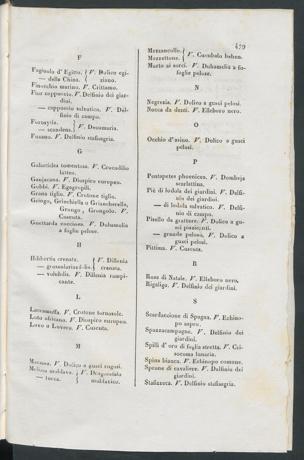 479
F
Fagiuolo d'Egitto. V. Dolico egi-
— della China. ziano.
Finocchio marino. V. Crittamo.
Fior cappuccio. V. Delfinio dei giar-
dini.
— cappuccio salvatico. V. Del-
finio di campo.
— scandens. V. Dessmaria.
Fusano. V. Delfinio stafisagria.
G
Galactides tomentosa. V. Crocodilio
latteo.
Ganjacana. V. Diospiro europeo.
Gobbi. V. Egopegili.
Grana tiglio. V. Crotone tiglio.
Gringo, Grinchiella o Grianchierella,
Grongo, Grongolo. V.
Cuscuta.
Guettarda coccinea. V. Duhamelia
a foglie pelose.
H
Hibbertia crenata. V. Dillenia
— grossulariaefolia. crenata.
— volubilis. V. Dillenia rampi-
cante.
L
Laccamuffa. V. Crotone tornasole.
Loto africano. V. Diospiro europeo.
Lovo o Luvero. V. Cuscuta.
M
Macuna. V. Dolico a gusci rugosi.
Melissa moldava. V. Dragocefalo
— turca. moldavico.
Mezzancollo.
Mezzettone. V. Cucubalo behen.
Morto ai sorci. V. Duhamelia a fo-
foglie pelose.
N
Negrezia. V. Dolico a gusci pelosi.
Nocca da denti. V. Elleboro nero.
O
Occhio d'asino. V. Dolico a gusci
pelosi.
P
Pentapetes phoenicea. V. Dombeja
scarlattina.
Piè di lodola dei giardini. V. Delfi-
nio dei giardini.
— di lodola salvatico. V. Delfi-
nio di campo.
Pisello da grattare. V. Dolico a gu-
sci pruzienti.
— grande peloso. V. Dolico a
gusci pelosi.
Pittima. V. Cuscuta.
R
Rosa di Natale. V. Elleboro nero.
Rigaligo. V. Delfinio dei giardini.
S
Scardaccione di Spagna. V. Echino-
po aspro.
Spazzacampagne. V. Delfinio dei
giardini.
Spilli d'oro di foglia stretta. V. Cri-
socoma linaria.
Spina bianca. V. Echinopo comune.
Sprone di cavaliere. V. Delfinio dei
giardini.
Stafizzeca. V. Delfinio stafisagria.